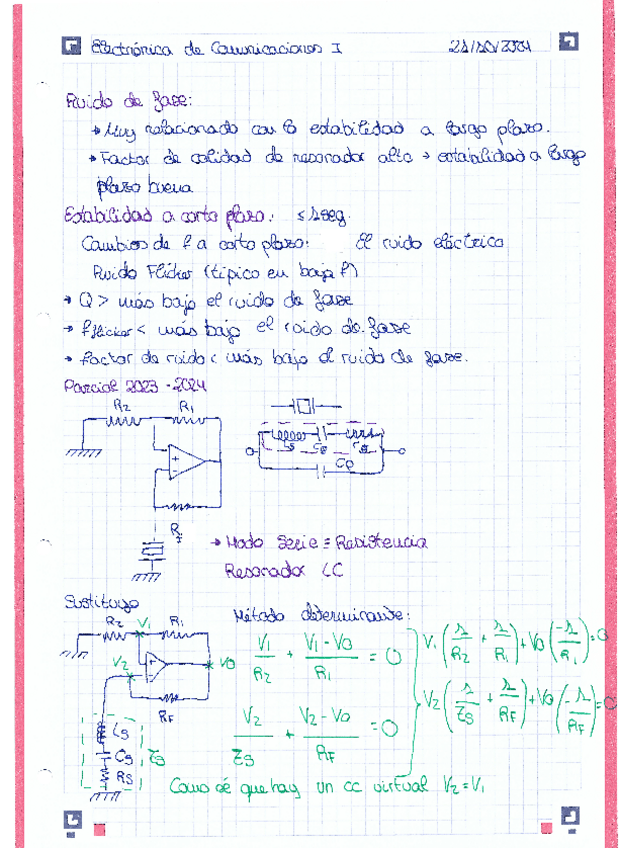 Electrónica de Comunicaciones I
Ruido de fase:
Muy relacionado con la estabilidad a largo plazo.
Factor de calidad de resonador alto → estabilidad a largo
plazo buena
Estabilidad a corto plazo. ≤ 1seg.
Cambios de f a corto plazo: El ruido eléctrico
Ruido Flicker (típico en baja f)
→ Q > más bajo el ruido de fase
→ fflicker < más bajo el ruido de fase
→ factor de ruido < más bajo el ruido de fase.
Parcial 2023-2024
R2 R1
Cs
Co
→ Modo Serie ≡ Resistencia
Resonador LC
Sustituyo
Método determinante:
R2 V1 R1
V2 V0
RF
Ls
Cs Zs
Rs
V1/R2 + V1-V0/R1 = 0
V1(1/R2 + 1/R1) + V0(-1/R1) = 0
V2/Zs + V2-V0/RF = 0
V2(1/Zs + 1/RF) + V0(-1/RF) = 0
Como sé que hay un cc virtual V2=V1